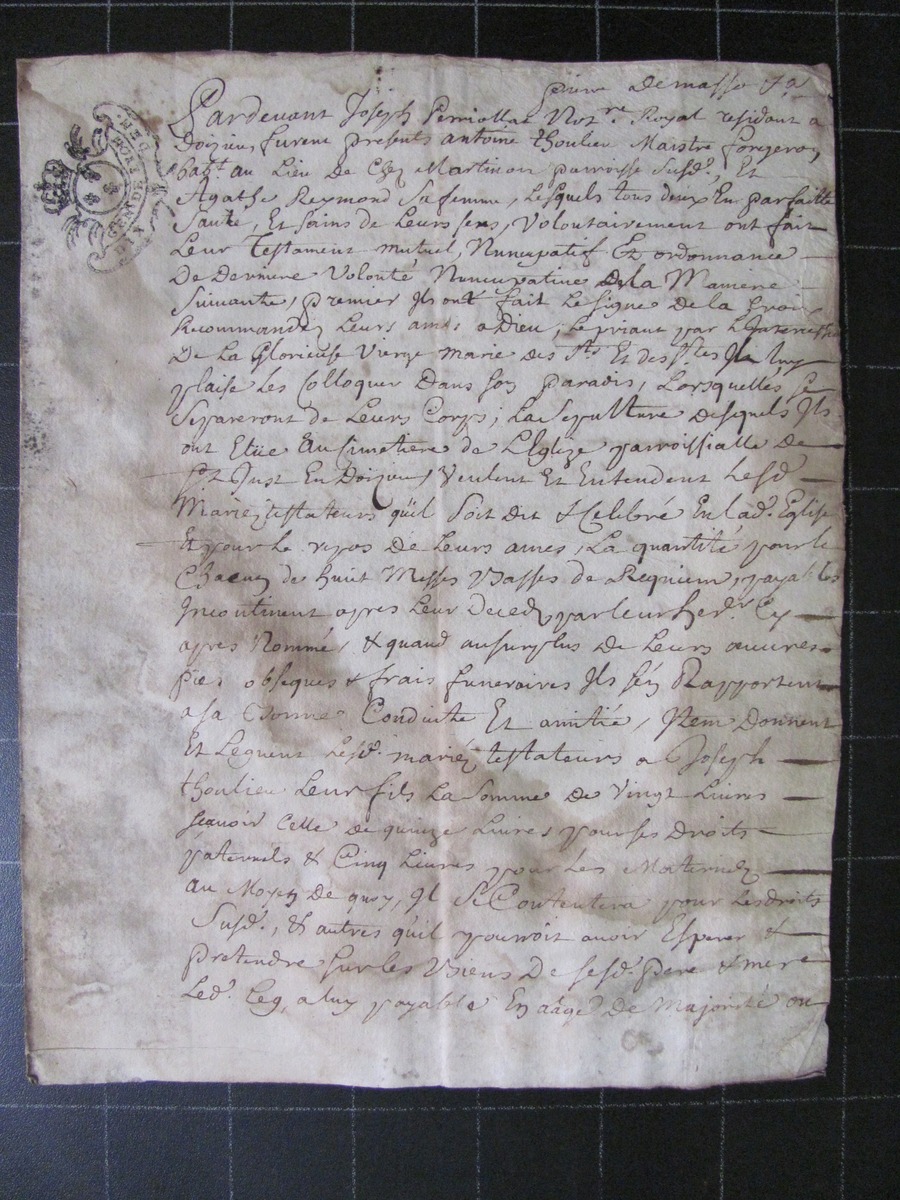 piere demasso
Pardevant Joseph Perriollat Notre Royal residant a
Doizieu furent presents antoine thoulieu Maistre forgeron
habt. au Lieu De Chez Martinon parroisse susd., Et
Agathe Reymond Safemme, Lesquels tous deux En parfaitte
Santé, Et sains de Leurs sens, Volontairement ont fait
Leur Testament mutuel, Nuncupatif Et ordonnance
De Derniere Volonté Nuncupative de la Maniere
Suivante, premier Ils ont fait Le signe De la Croix
Recommandez Leurs ames a Dieu, Le priant par
De La Glorieuse Vierge Marie des Sts Et des Stes luy
plaise Les Colloquer Dans son paradis, Lorsquelles se
Separeront de Leurs Corps; La Sepulture Desquels Ils
ont Elüe Au Simetiere de L'Eglize parroissialle De
St. Just En Doizieu, Veulent Et Entendent Lesd.
Mariez testateurs qu'il Soit Dit & Celibré En lad. Eglise
Et pour Le repos De Leurs ames, La quantité pour le
Chacun de huit Messes Basses de Requiem, payables
Incontinent apres Leur Deced par leur herer. Cy
apres Nommé, & quand au surplus De Leurs œuvres
pies obseques & frais funeraires Ils s'en Rapportent
a sa Bonne Conduitte Et amitié, Item Donnent
Et Leguent Lesd. mariez testateurs a Joseph
thoulieu Leur fils La Somme De Vingt Livres
scavoir Celle de quinze Livres pour ses Droits
paternels & Cinq Livres pour Les Maternels
au Moyen De quoy, Il Se Contentera pour Les droits
Susd., & autres qu'il pourroit avoir Esperer &
pretendre sur les Biens De sesd. pere & mere
Led. Leg, a luy payable En aage De Majorité ou